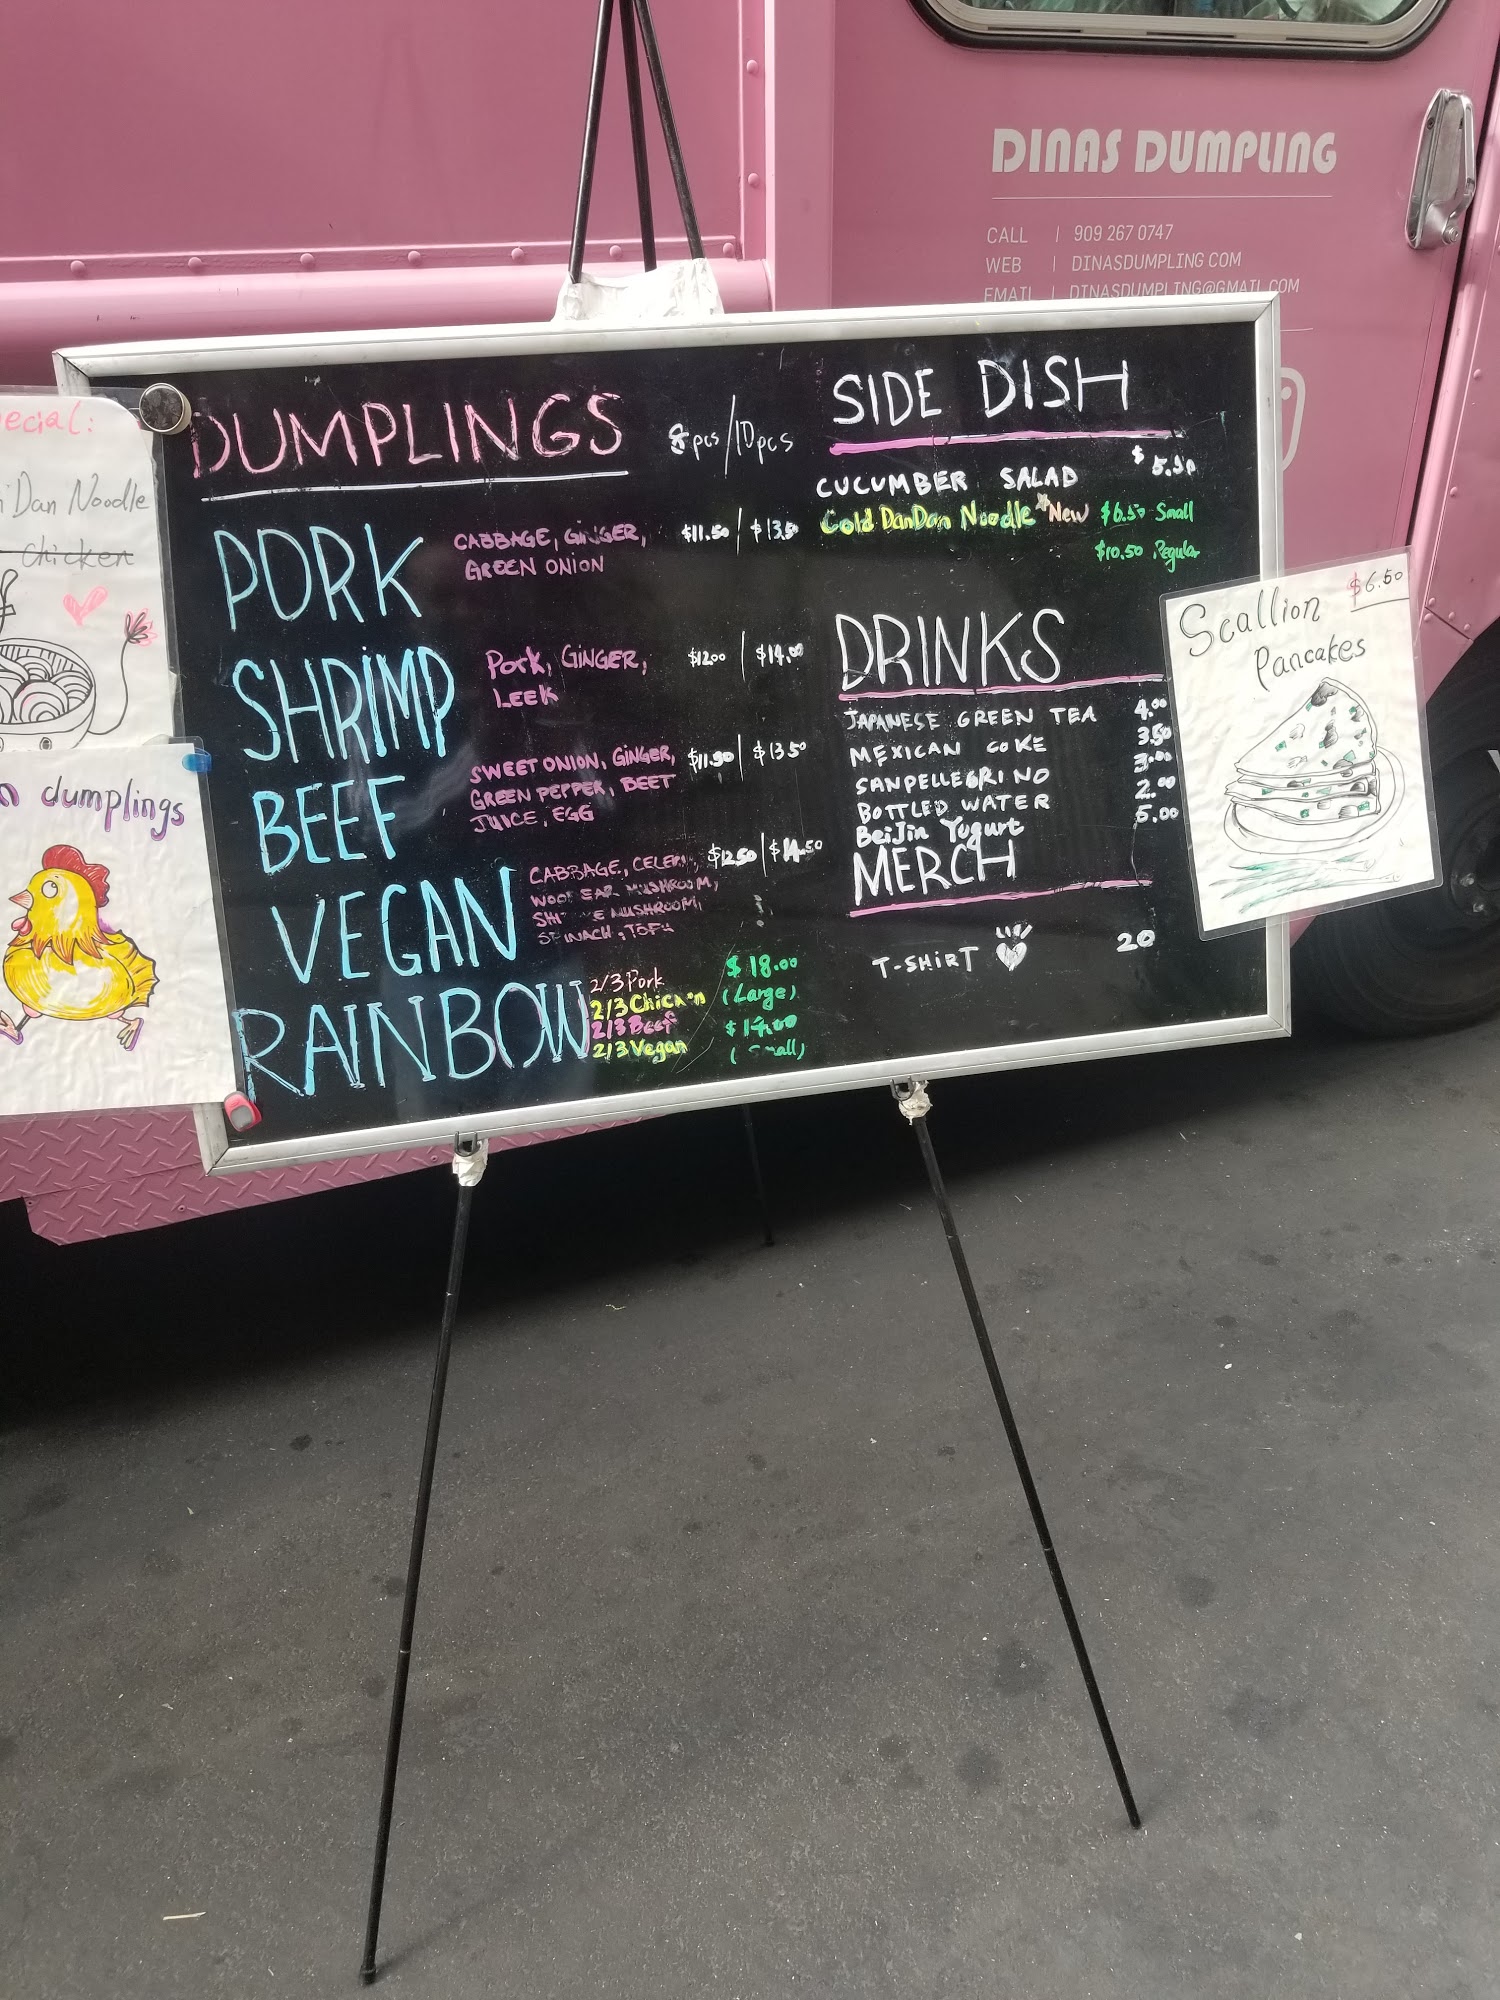 DINAS DUMPLING
CALL | 909 267 0747
WEB | DINASDUMPLING COM
EMAIL | DINASDUMPLING@GMAIL.COM
ecial:
Dan Noodle
chicken
dumplings
DUMPLINGS 8pcs/10pcs
PORK CABBAGE, GINGER, $11.50 | $13.50
GREEN ONION
SHRIMP Pork, GINGER, $12.00 | $14.00
LEEK
BEEF SWEET ONION, GINGER, $11.50 | $13.50
GREEN PEPPER, BEET
JUICE, EGG
VEGAN CABBAGE, CELERY, $12.50 | $14.50
WOOD EAR MUSHROOM,
MUSHROOM,
SPINACH, TOFU
RAINBOW 2/3 Pork $18.00
2/3 Chicken (Large)
2/3 Beef
2/3 Vegan (Small)
SIDE DISH
CUCUMBER SALAD $
Cold DanDan Noodle *New $6.50 Small
$10.50 Regular
DRINKS
JAPANESE GREEN TEA 4.00
MEXICAN COKE 3.50
SANPELLEGRINO 3.00
BOTTLED WATER 2.00
BeiJin Yugurt 5.00
MERCH
T-SHIRT 20
Scallion $6.50
Pancakes